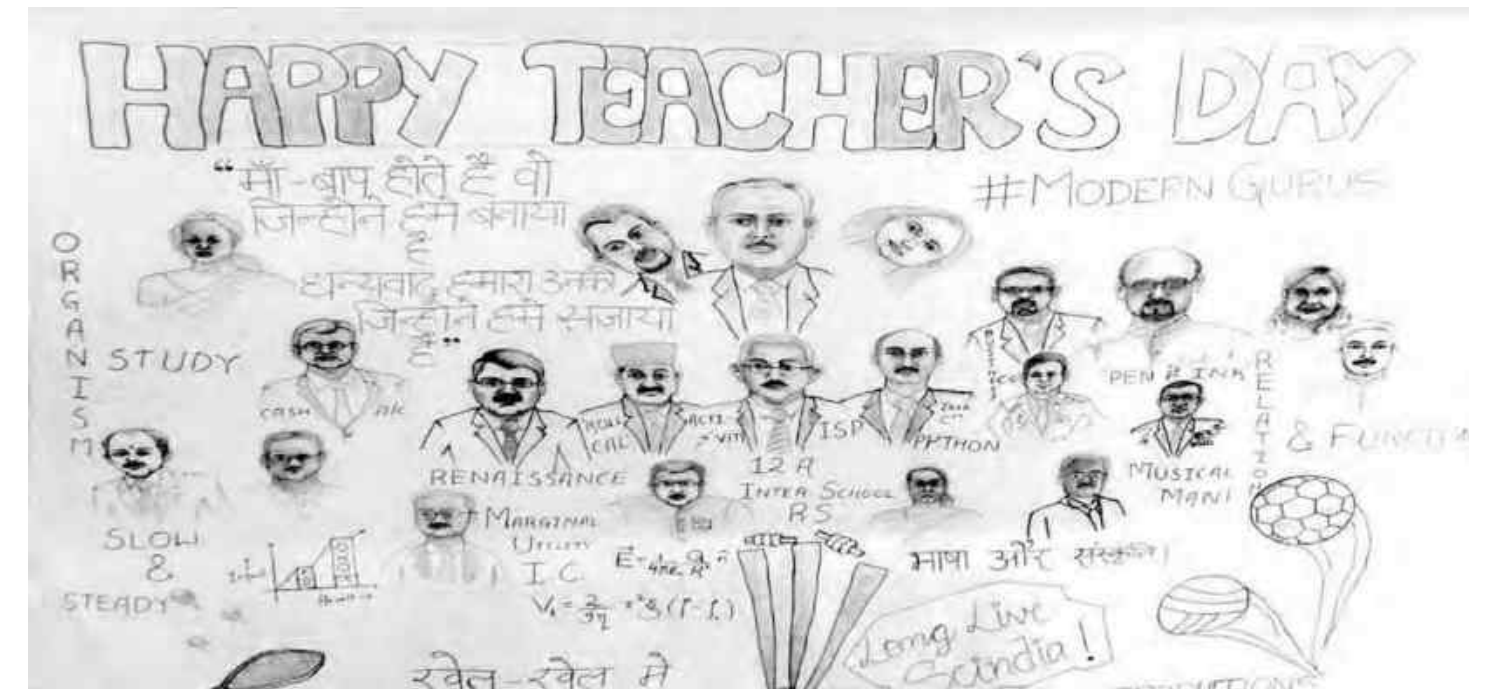 HAPPY TEACHER'S DAY
“माँ-बाप होते हैं वो
जिन्होंने हमें बनाया
है
धन्यवाद हमारा उनको
जिन्होंने हमें सजाया
है”
#MODERN GURUS
ORGANISM
STUDY
CASH
RENAISSANCE
CAL
ISP
PYTHON
12 A
INTER SCHOOL
RS
PEN & INK
RELATION
& FUNCTI
MUSICAL
MANI
SLOW
&
STEADY
MARGINAL
UTILITY
I.C.
भाषा और संस्कृति।
Long Live
Scindia!
खेल-खेल मे